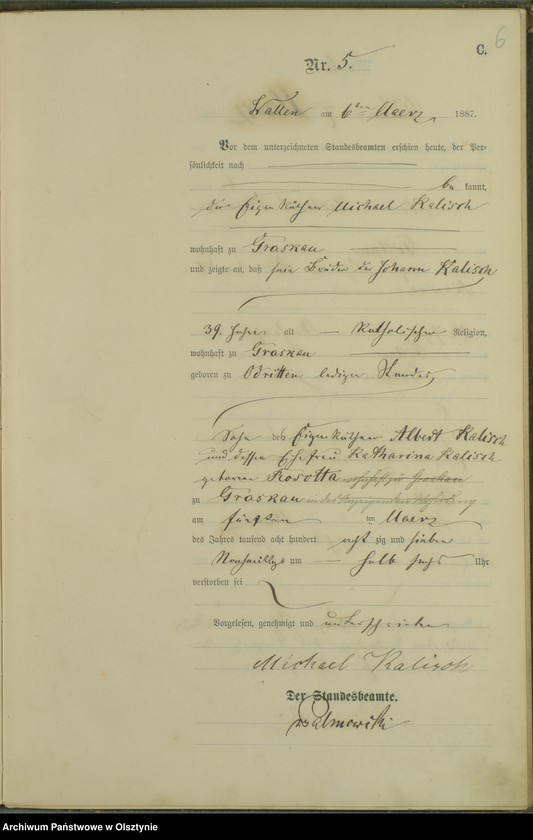 C. 6
Nr. 5.
Wallen am 6ten Maerz 1887.
Vor dem unterzeichneten Standesbeamten erschien heute, der Per-
sönlichkeit nach
be kannt,
der Eigenkäthner Michael Kalisch
wohnhaft zu Graskau
und zeigte an, daß sein Bruder der Johann Kalisch
39. Jahre alt katholischer Religion,
wohnhaft zu Graskau
geboren zu Odritten lediger Standes,
Sohn des Eigenkäthner Albert Kalisch
und dessen Ehefrau Katharina Kalisch
geborene Rosotta
zu Graskau in des
am fünften ten Maerz
des Jahres tausend acht hundert acht zig und sieben
Nachmittags um halb sechs Uhr
verstorben sei
Vorgelesen, genehmigt und unterschrieben
Michael Kalisch
Der Standesbeamte.
v Palmowski
Archiwum Państwowe w Olsztynie